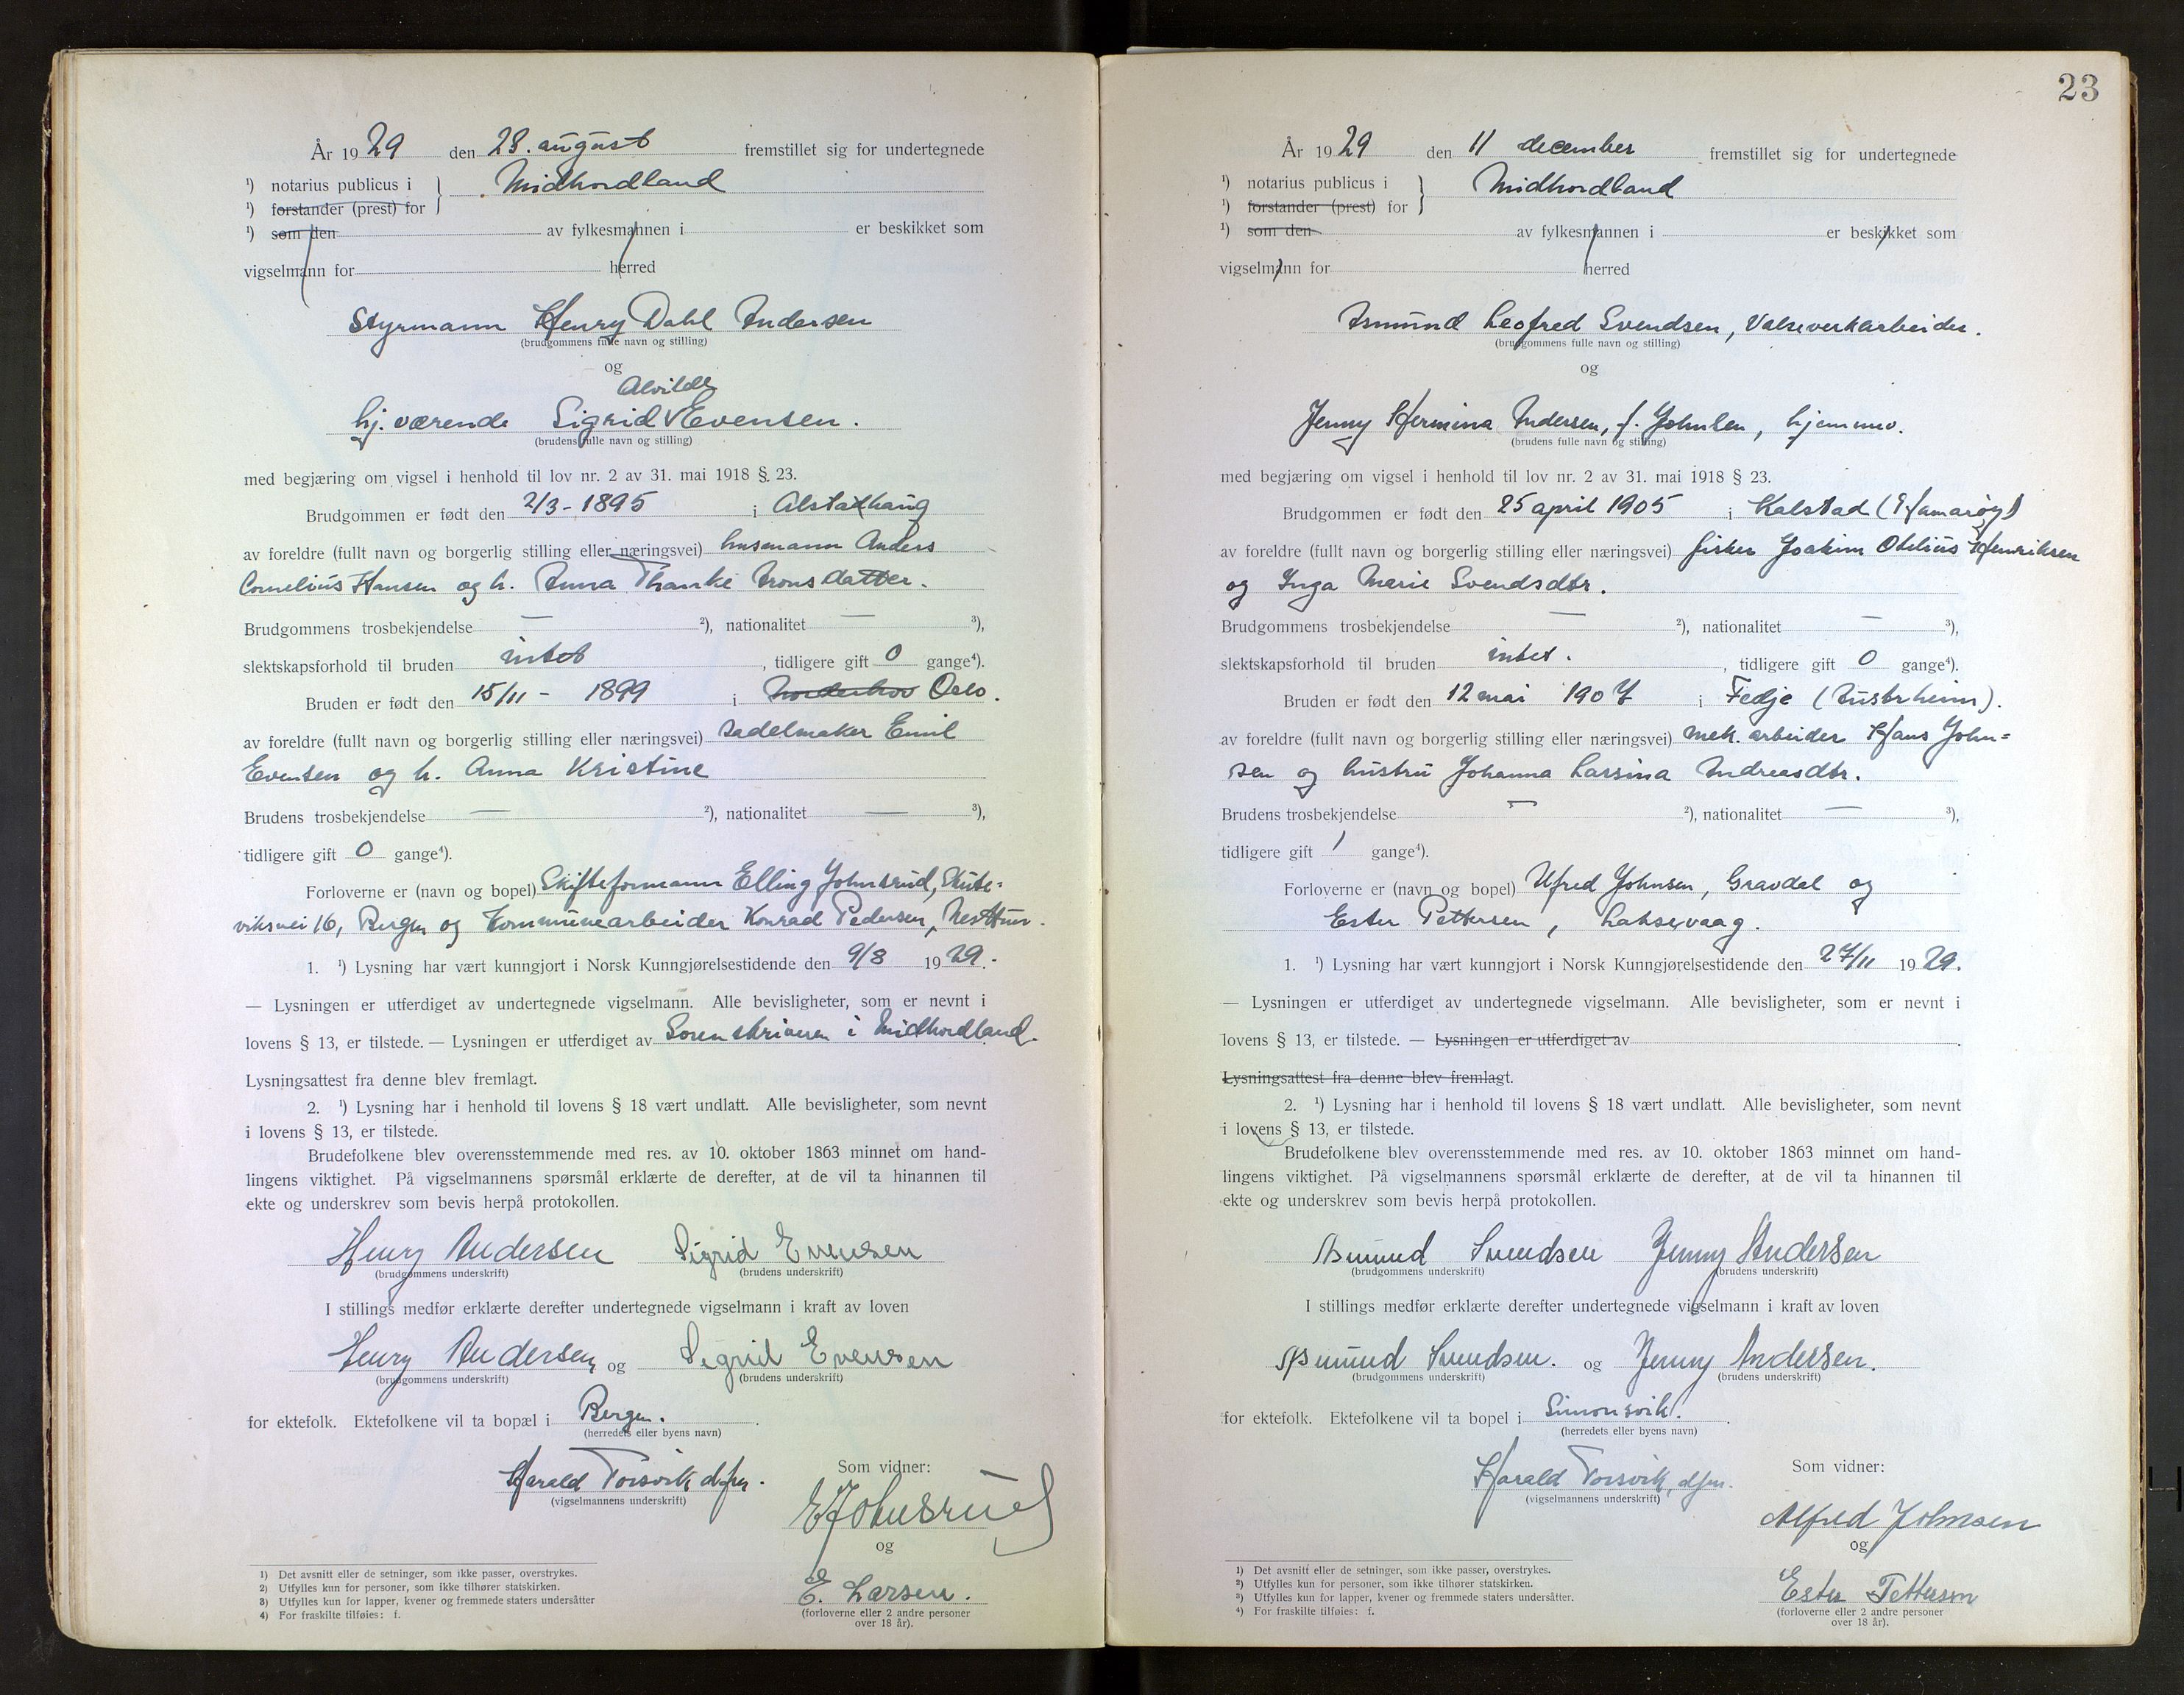 År 1929 den 28. august fremstillet sig for undertegnede
¹) notarius publicus i } Midhordland
¹) forstander (prest) for
¹) som den av fylkesmannen i er beskikket som
vigselmann for herred
Styrmann Henry Dahl Andersen
(brudgommens fulle navn og stilling)
og
Alvilde
hj. værende Sigrid √ Evensen.
(brudens fulle navn og stilling)
med begjæring om vigsel i henhold til lov nr. 2 av 31. mai 1918 § 23.
Brudgommen er født den 2/3 - 1895 i Alstahaug
av foreldre (fullt navn og borgerlig stilling eller næringsvei) husmann Anders
Cornelius Hansen og h. Anna Thanke Aronsdatter.
Brudgommens trosbekjendelse — ²), nationalitet — ³),
slektskapsforhold til bruden intet, tidligere gift 0 gange⁴).
Bruden er født den 15/11 - 1899 i Norderhov Oslo.
av foreldre (fullt navn og borgerlig stilling eller næringsvei) sadelmaker Emil
Evensen og h. Anna Kristine
Brudens trosbekjendelse — ²), nationalitet — ³),
tidligere gift 0 gange⁴).
Forloverne er (navn og bopel) Skifteformann Elling Johnsrud, Skute-
viksvei 16, Bergen og Kommunearbeider Konrad Pedersen, Nesttun.
1. ¹) Lysning har vært kunngjort i Norsk Kunngjørelsestidende den 9/8 1929.-
— Lysningen er utferdiget av undertegnede vigselmann. Alle bevisligheter, som er nevnt i
lovens § 13, er tilstede. — Lysningen er utferdiget av Sorenskriveren i Midhordland.
Lysningsattest fra denne blev fremlagt.
2. ¹) Lysning har i henhold til lovens § 18 vært undlatt. Alle bevisligheter, som nevnt
i lovens § 13, er tilstede.
Brudefolkene blev overensstemmende med res. av 10. oktober 1863 minnet om hand-
lingens viktighet. På vigselmannens spørsmål erklærte de derefter, at de vil ta hinannen til
ekte og underskrev som bevis herpå protokollen.
Henry Andersen Sigrid Evensen
(brudgommens underskrift) (brudens underskrift)
I stillings medfør erklærte derefter undertegnede vigselmann i kraft av loven
Henry Andersen og Sigrid Evensen
(brudgommens underskrift) (brudens underskrift)
for ektefolk. Ektefolkene vil ta bopæl i Bergen.
(herredets eller byens navn)
Harald Torsvik dfm.
(vigselmannens underskrift)
Som vidner:
E Johnsrud
og
E. Larsen.
(forloverne eller 2 andre personer
over 18 år).
1) Det avsnitt eller de setninger, som ikke passer, overstrykes.
2) Utfylles kun for personer, som ikke tilhører statskirken.
3) Utfylles kun for lapper, kvener og fremmede staters undersåtter
4) For fraskilte tilføies: f.
23
År 1929 den 11 december fremstillet sig for undertegnede
¹) notarius publicus i } Midhordland
¹) forstander (prest) for
¹) som den av fylkesmannen i er beskikket som
vigselmann for herred
Asmund Leofred Svendsen, Valseverkarbeider.
(brudgommens fulle navn og stilling)
og
Jenny Hermina Andersen, f. Johnsen, hjemmev.
(brudens fulle navn og stilling)
med begjæring om vigsel i henhold til lov nr. 2 av 31. mai 1918 § 23.
Brudgommen er født den 25 april 1905 i Kalstad (Hamarøy)
av foreldre (fullt navn og borgerlig stilling eller næringsvei) fisker Joakim Otelius Henriksen
og Inga Marie Svendsdtr.
Brudgommens trosbekjendelse — ²), nationalitet — ³),
slektskapsforhold til bruden intet., tidligere gift 0 gange⁴).
Bruden er født den 12 mai 1907 i Fedje (Austrheim).
av foreldre (fullt navn og borgerlig stilling eller næringsvei) mek. arbeider Hans John=
sen og hustru Johanna Larsina Andreasdtr.
Brudens trosbekjendelse — ²), nationalitet — ³),
tidligere gift 1 gange⁴).
Forloverne er (navn og bopel) Alfred Johnsen, Gravdal og
Ester Pettersen, Laksevaag.
1. ¹) Lysning har vært kunngjort i Norsk Kunngjørelsestidende den 27/11 1929.
— Lysningen er utferdiget av undertegnede vigselmann. Alle bevisligheter, som er nevnt i
lovens § 13, er tilstede. — Lysningen er utferdiget av .
Lysningsattest fra denne blev fremlagt.
2. ¹) Lysning har i henhold til lovens § 18 vært undlatt. Alle bevisligheter, som nevnt
i lovens § 13, er tilstede.
Brudefolkene blev overensstemmende med res. av 10. oktober 1863 minnet om hand-
lingens viktighet. På vigselmannens spørsmål erklærte de derefter, at de vil ta hinannen til
ekte og underskrev som bevis herpå protokollen.
Asmund Svendsen Jenny Andersen
(brudgommens underskrift) (brudens underskrift)
I stillings medfør erklærte derefter undertegnede vigselmann i kraft av loven
Asmund Svendsen. og Jenny Andersen.
(brudgommens underskrift) (brudens underskrift)
for ektefolk. Ektefolkene vil ta bopel i Simonsvik.
(herredets eller byens navn)
Harald Torsvik, dfm.
(vigselmannens underskrift)
Som vidner:
Alfred Johnsen
og
Ester Pettersen
(forloverne eller 2 andre personer
over 18 år).
1) Det avsnitt eller de setninger, som ikke passer, overstrykes.
2) Utfylles kun for personer, som ikke tilhører statskirken.
3) Utfylles kun for lapper, kvener og fremmede staters undersåtter.
4) For fraskilte tilføies: f.